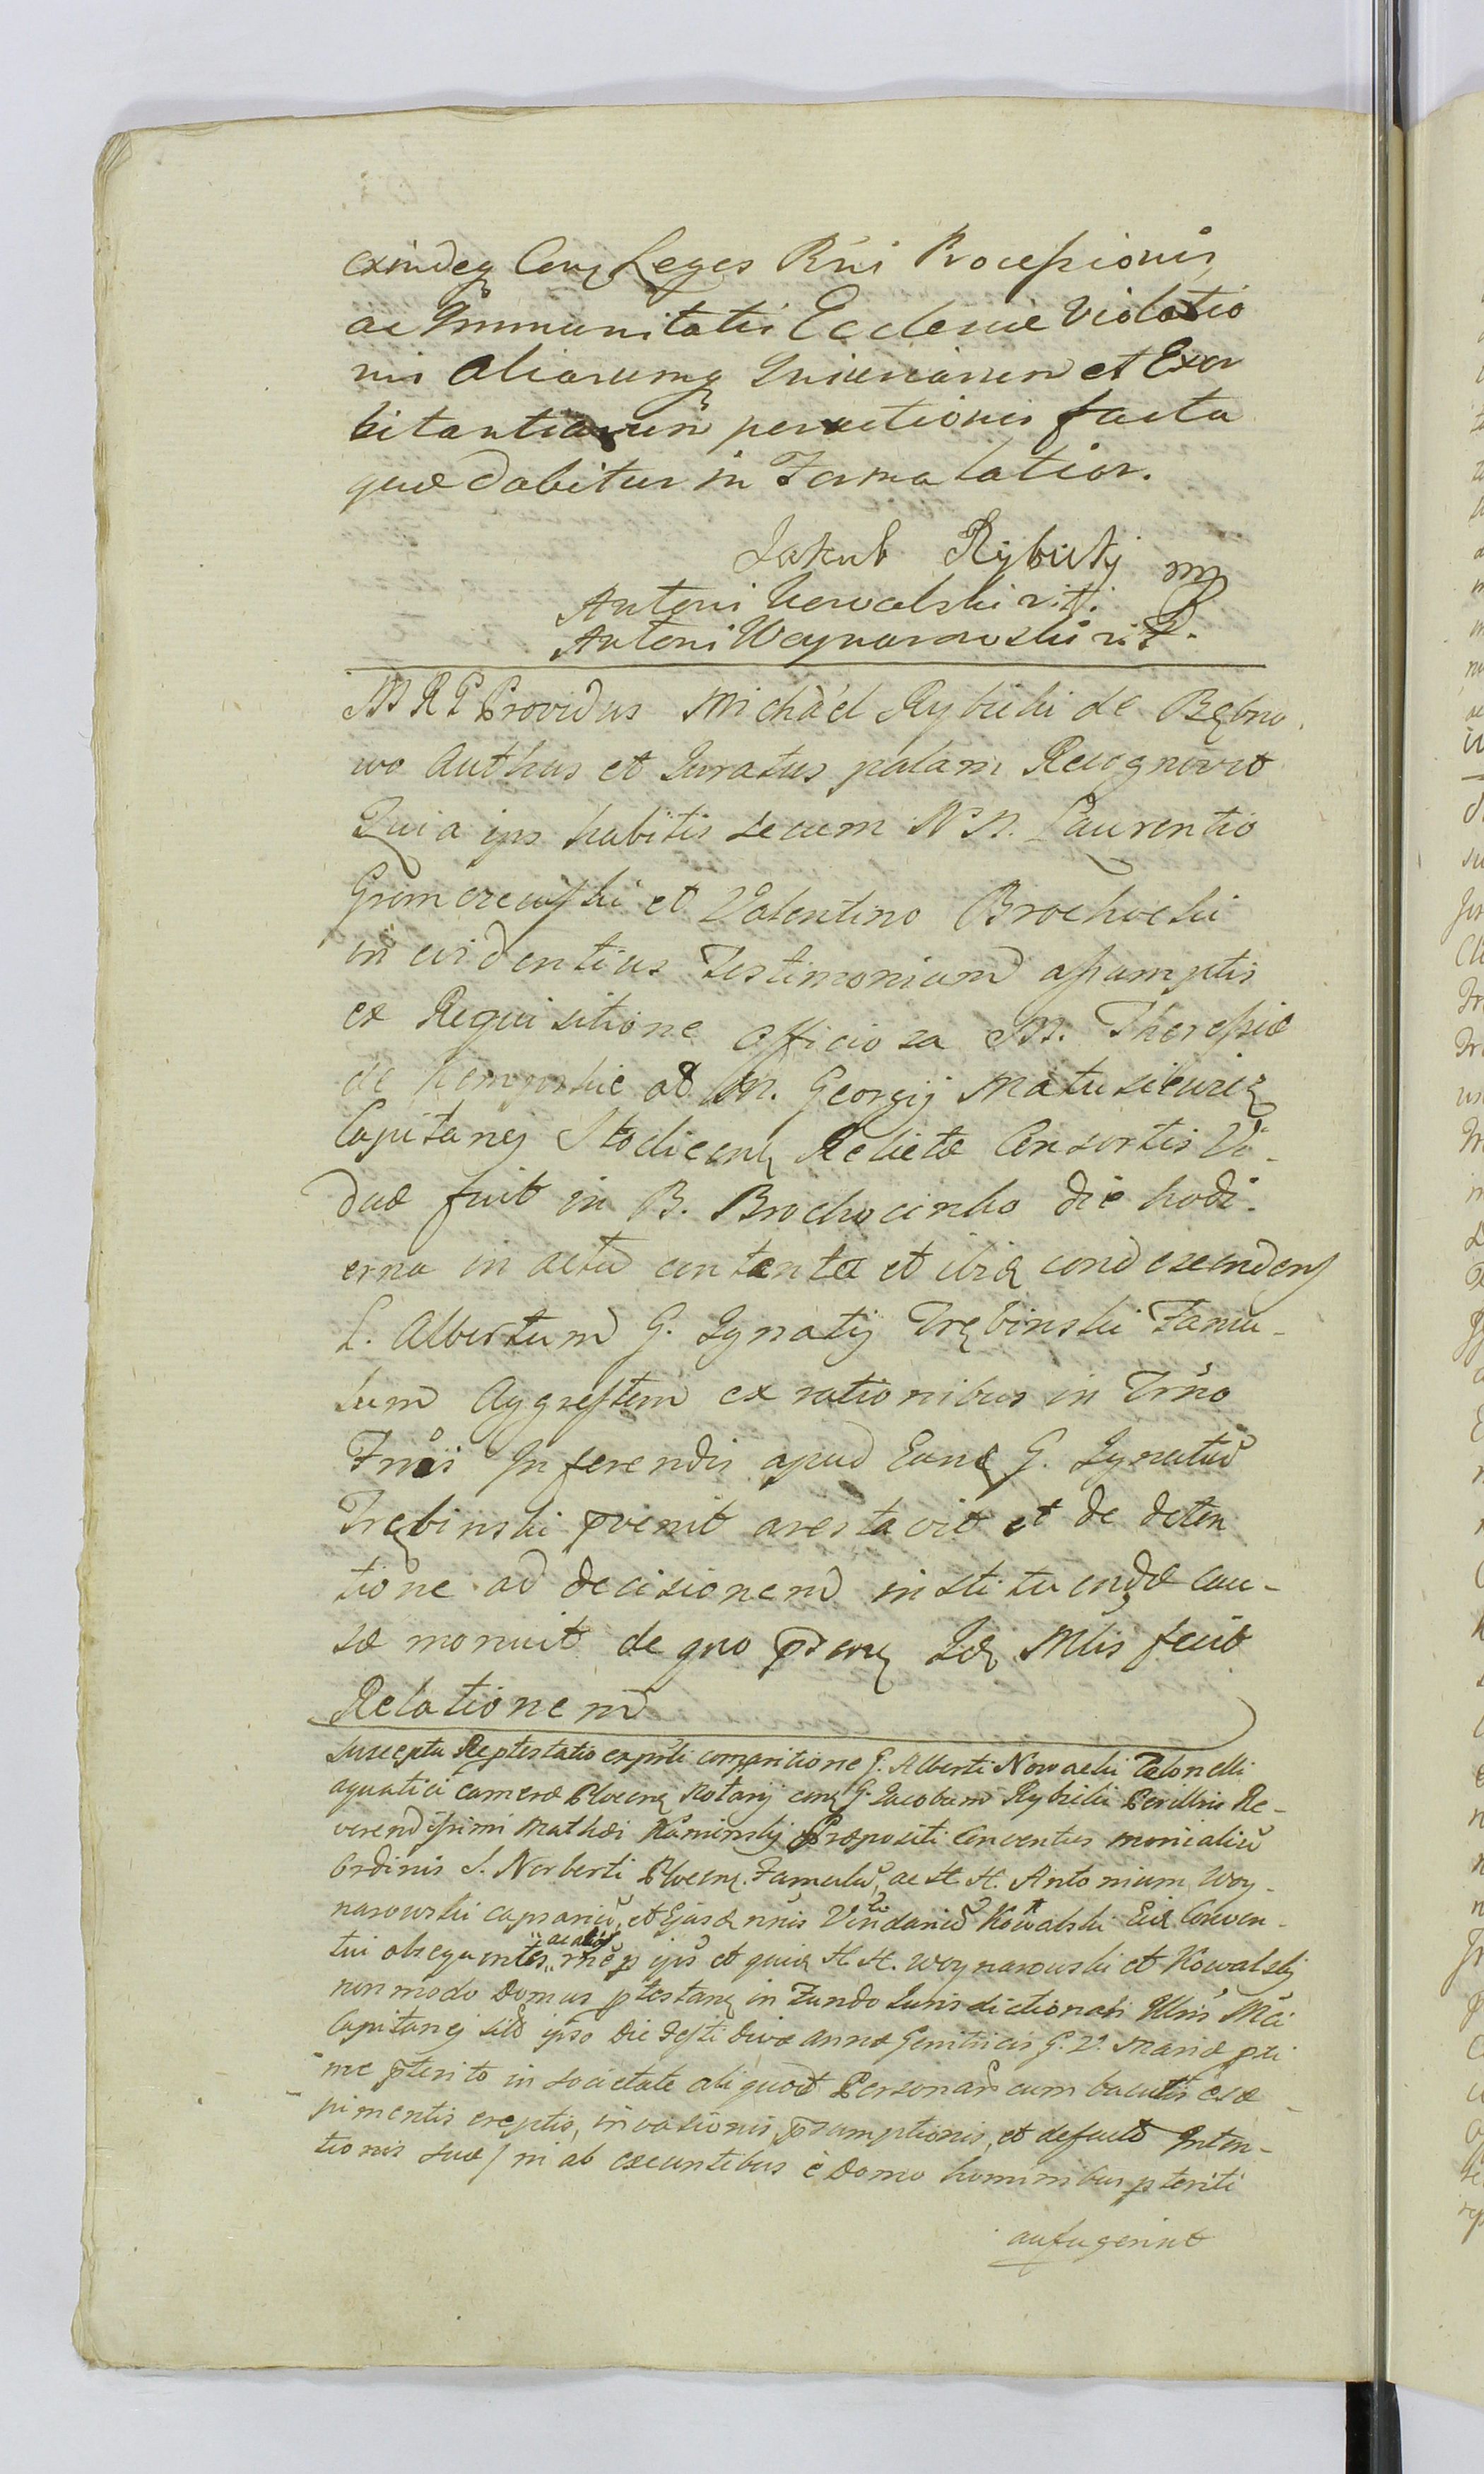 exindeq Conq Leges Rni Processionis
ac Immunitatis Ecclesiæ Violatio
nis aliarumq Iniuriarum et Exor
bitantiarum peractionis facta
quæ dabitur in Forma latior.
Jakub Rybicky mp
Antoni Kowalski ritt.
Antoni Woynarowski ritt.
M R P Providus Michäel Rybicki de Bębno
wo Authus et Juratus palam Recognovit
Quia ips habitis secum N N. Laurentio
Gromczewski et Valentino Brochocki
in evidentius Testimonium assumptis
ex Requisitione officiosa M. Theressiæ
de Kempskie ad M. Georgij Matusiewicz
Capitanej Stodicenq Relictæ Consortis Vi-
duæ fuit in B. Brochocinko die hodi-
erna in actu contenta et ibiq condescendens
L. Albertum G. Ignatij Trębinski Famu-
lum Aggressum ex rationibus in Trno
Frnsi Inferendis apud Eund G. Ignatiu
Trębinski pvenit arestavit et de deten
tione ad decisionem instituendæ cau-
sæ monuit de quo psenq Idq Mlis fecit
Relationem
Suscepta Reptestatio expsti comparitione G. Alberti Nowacki Telonelli
aquatici Cameræ Plocenq Notarij conq G. Jacobum Rybicki Perillris Re-
verendissimi Mathæi Kaminskj Præpositi Conventus monialiu
Ordinis S. Norberti Plocenq Famulu, ac H H. Antonium Woy-
narowski caprariu, et Ejusd nnis Vindariu Kowalski Eid Conven-
tui obsequentes, ac alios mep ijs et quia H H. Woynarowski et Kowalskj
non modo Domus ptestanq in Fundo Jurisdictionali Illris Mci
Capitanej sitæ ipso die Festi Divæ Annæ Genitricis G. V. Mariæ pxi
me pterito in societate aliquot Personaru cum baculis esæ
pimentis ereptis, invasionis, psumptionis, et defectu Inten-
tionis suæ / ni ab exeuntibus è Domo hominibus pteriti
aufugerint